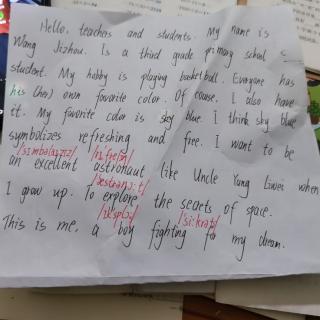 Hello, teachers and students. My name is
Wang Jizhou. Is a third grade primary school s
student. My hobby is playing basket ball. Everyone has
his (her) own favorite color. Of course. I also have
it. My favorite color is sky blue. I think sky blue
symbolizes refreshing and free. I want to be
an excellent astronaut like Uncle Yang Liwei when
I grow up. To explore the secrets of space.
This is me, a boy fighting for my dream.